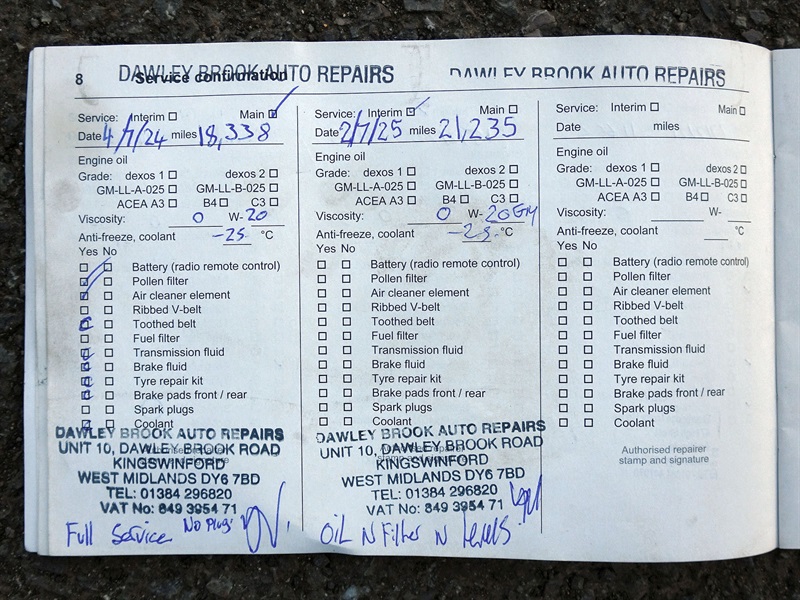 8 Service confirmation
DAWLEY BROOK AUTO REPAIRS
DAWLEY BROOK AUTO REPAIRS
Service: Interim Main
Date 4/7/24 miles 18,338
Engine oil
Grade: dexos 1 dexos 2
GM-LL-A-025 GM-LL-B-025
ACEA A3 B4 C3
Viscosity: 0 W-20
Anti-freeze, coolant -25 °C
Yes No
Battery (radio remote control)
Pollen filter
Air cleaner element
Ribbed V-belt
Toothed belt
Fuel filter
Transmission fluid
Brake fluid
Tyre repair kit
Brake pads front / rear
Spark plugs
Coolant
DAWLEY BROOK AUTO REPAIRS
UNIT 10, DAWLEY BROOK ROAD
KINGSWINFORD
WEST MIDLANDS DY6 7BD
TEL: 01384 296820
VAT No: 849 3954 71
Full Service No Plugs
Service: Interim Main
Date 2/7/25 miles 21,235
Engine oil
Grade: dexos 1 dexos 2
GM-LL-A-025 GM-LL-B-025
ACEA A3 B4 C3
Viscosity: 0 W-20
Anti-freeze, coolant -25 °C
Yes No
Battery (radio remote control)
Pollen filter
Air cleaner element
Ribbed V-belt
Toothed belt
Fuel filter
Transmission fluid
Brake fluid
Tyre repair kit
Brake pads front / rear
Spark plugs
Coolant
Authorised repairer
stamp and signature
DAWLEY BROOK AUTO REPAIRS
UNIT 10, DAWLEY BROOK ROAD
KINGSWINFORD
WEST MIDLANDS DY6 7BD
TEL: 01384 296820
VAT No: 849 3954 71
OiL N Filter N levels
Service: Interim Main
Date miles
Engine oil
Grade: dexos 1 dexos 2
GM-LL-A-025 GM-LL-B-025
ACEA A3 B4 C3
Viscosity: W-
Anti-freeze, coolant °C
Yes No
Battery (radio remote control)
Pollen filter
Air cleaner element
Ribbed V-belt
Toothed belt
Fuel filter
Transmission fluid
Brake fluid
Tyre repair kit
Brake pads front / rear
Spark plugs
Coolant
Authorised repairer
stamp and signature